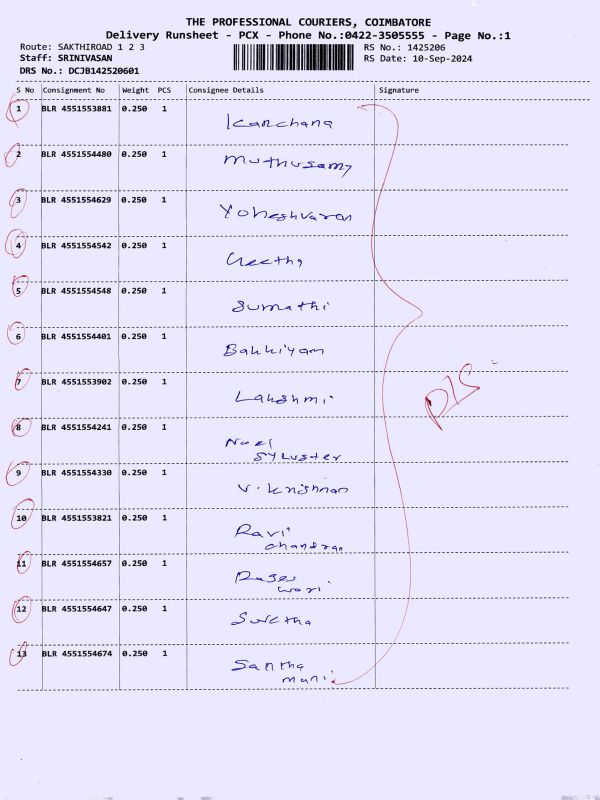 THE PROFESSIONAL COURIERS, COIMBATORE
Delivery Runsheet - PCX - Phone No.:0422-3505555 - Page No.:1
Route: SAKTHIROAD 1 2 3 RS No.: 1425206
Staff: SRINIVASAN RS Date: 10-Sep-2024
DRS No.: DCJB142520601
S No Consignment No Weight PCS Consignee Details Signature
1 BLR 4551553881 0.250 1
Kanchana
2 BLR 4551554480 0.250 1
Muthusamy
3 BLR 4551554629 0.250 1
Yoheshvaran
4 BLR 4551554542 0.250 1
Geetha
5 BLR 4551554548 0.250 1
Sumathi
6 BLR 4551554401 0.250 1
Bakkiyam
7 BLR 4551553902 0.250 1
Lakshmi
8 BLR 4551554241 0.250 1
Noel
Sylvster
9 BLR 4551554330 0.250 1
V. Krishnan
10 BLR 4551553821 0.250 1
Ravi
chandran
11 BLR 4551554657 0.250 1
Rajes
wari
12 BLR 4551554647 0.250 1
13 BLR 4551554674 0.250 1
Santha
muni